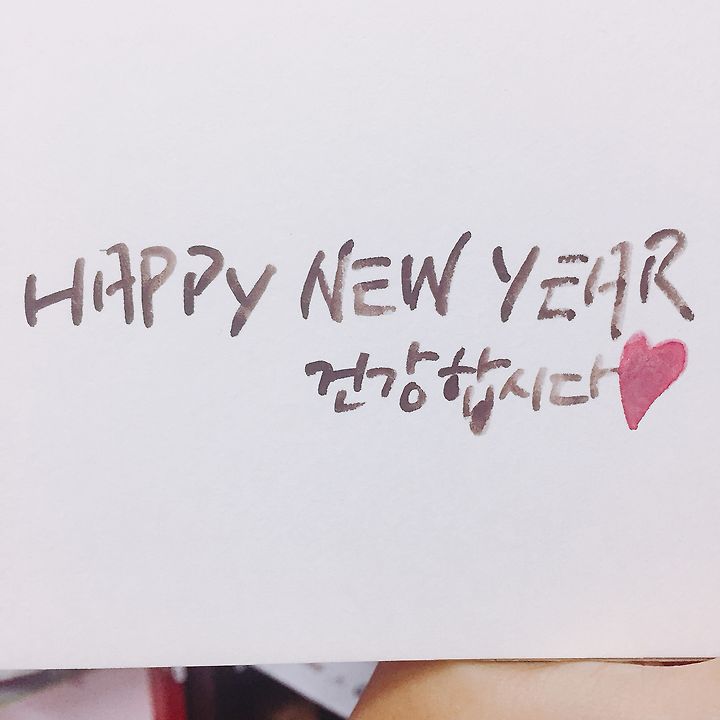 HAPPY NEW YEAR
건강합시다